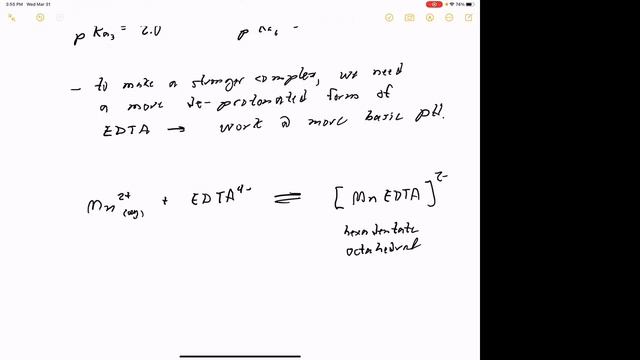 3:55 PM Wed Mar 31
76%
pKa₃ = 2.0
- to make a stronger complex, we need
a more de-protonated form of
EDTA → work @ more basic pH.
Mn²⁺(aq) + EDTA⁴⁻ ⇌ [Mn EDTA]²⁻
hexadentate
octahedral